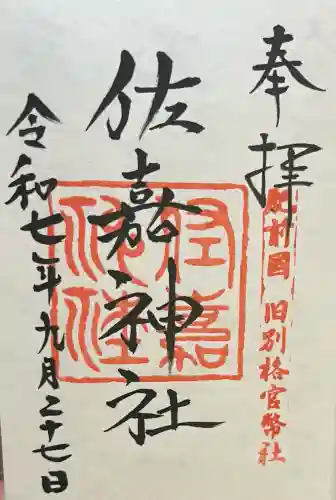 奉拝
肥前國 旧別格官幣社
佐嘉神社
令和七年九月二十七日